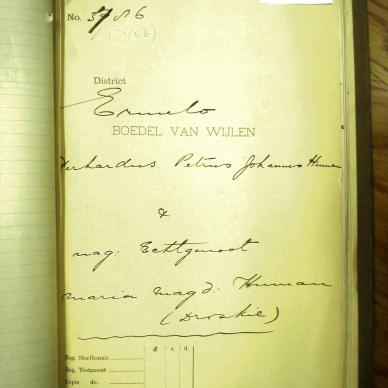 No. 3986
District
Ermelo
BOEDEL VAN WIJLEN
Gerhardus Petrus Johannes Human
&
nag: Echtgenoot
Maria Magd: Human
(Droskie)
£ s. d.
Reg. Sterfkennis
Reg. Testament
Copie de.